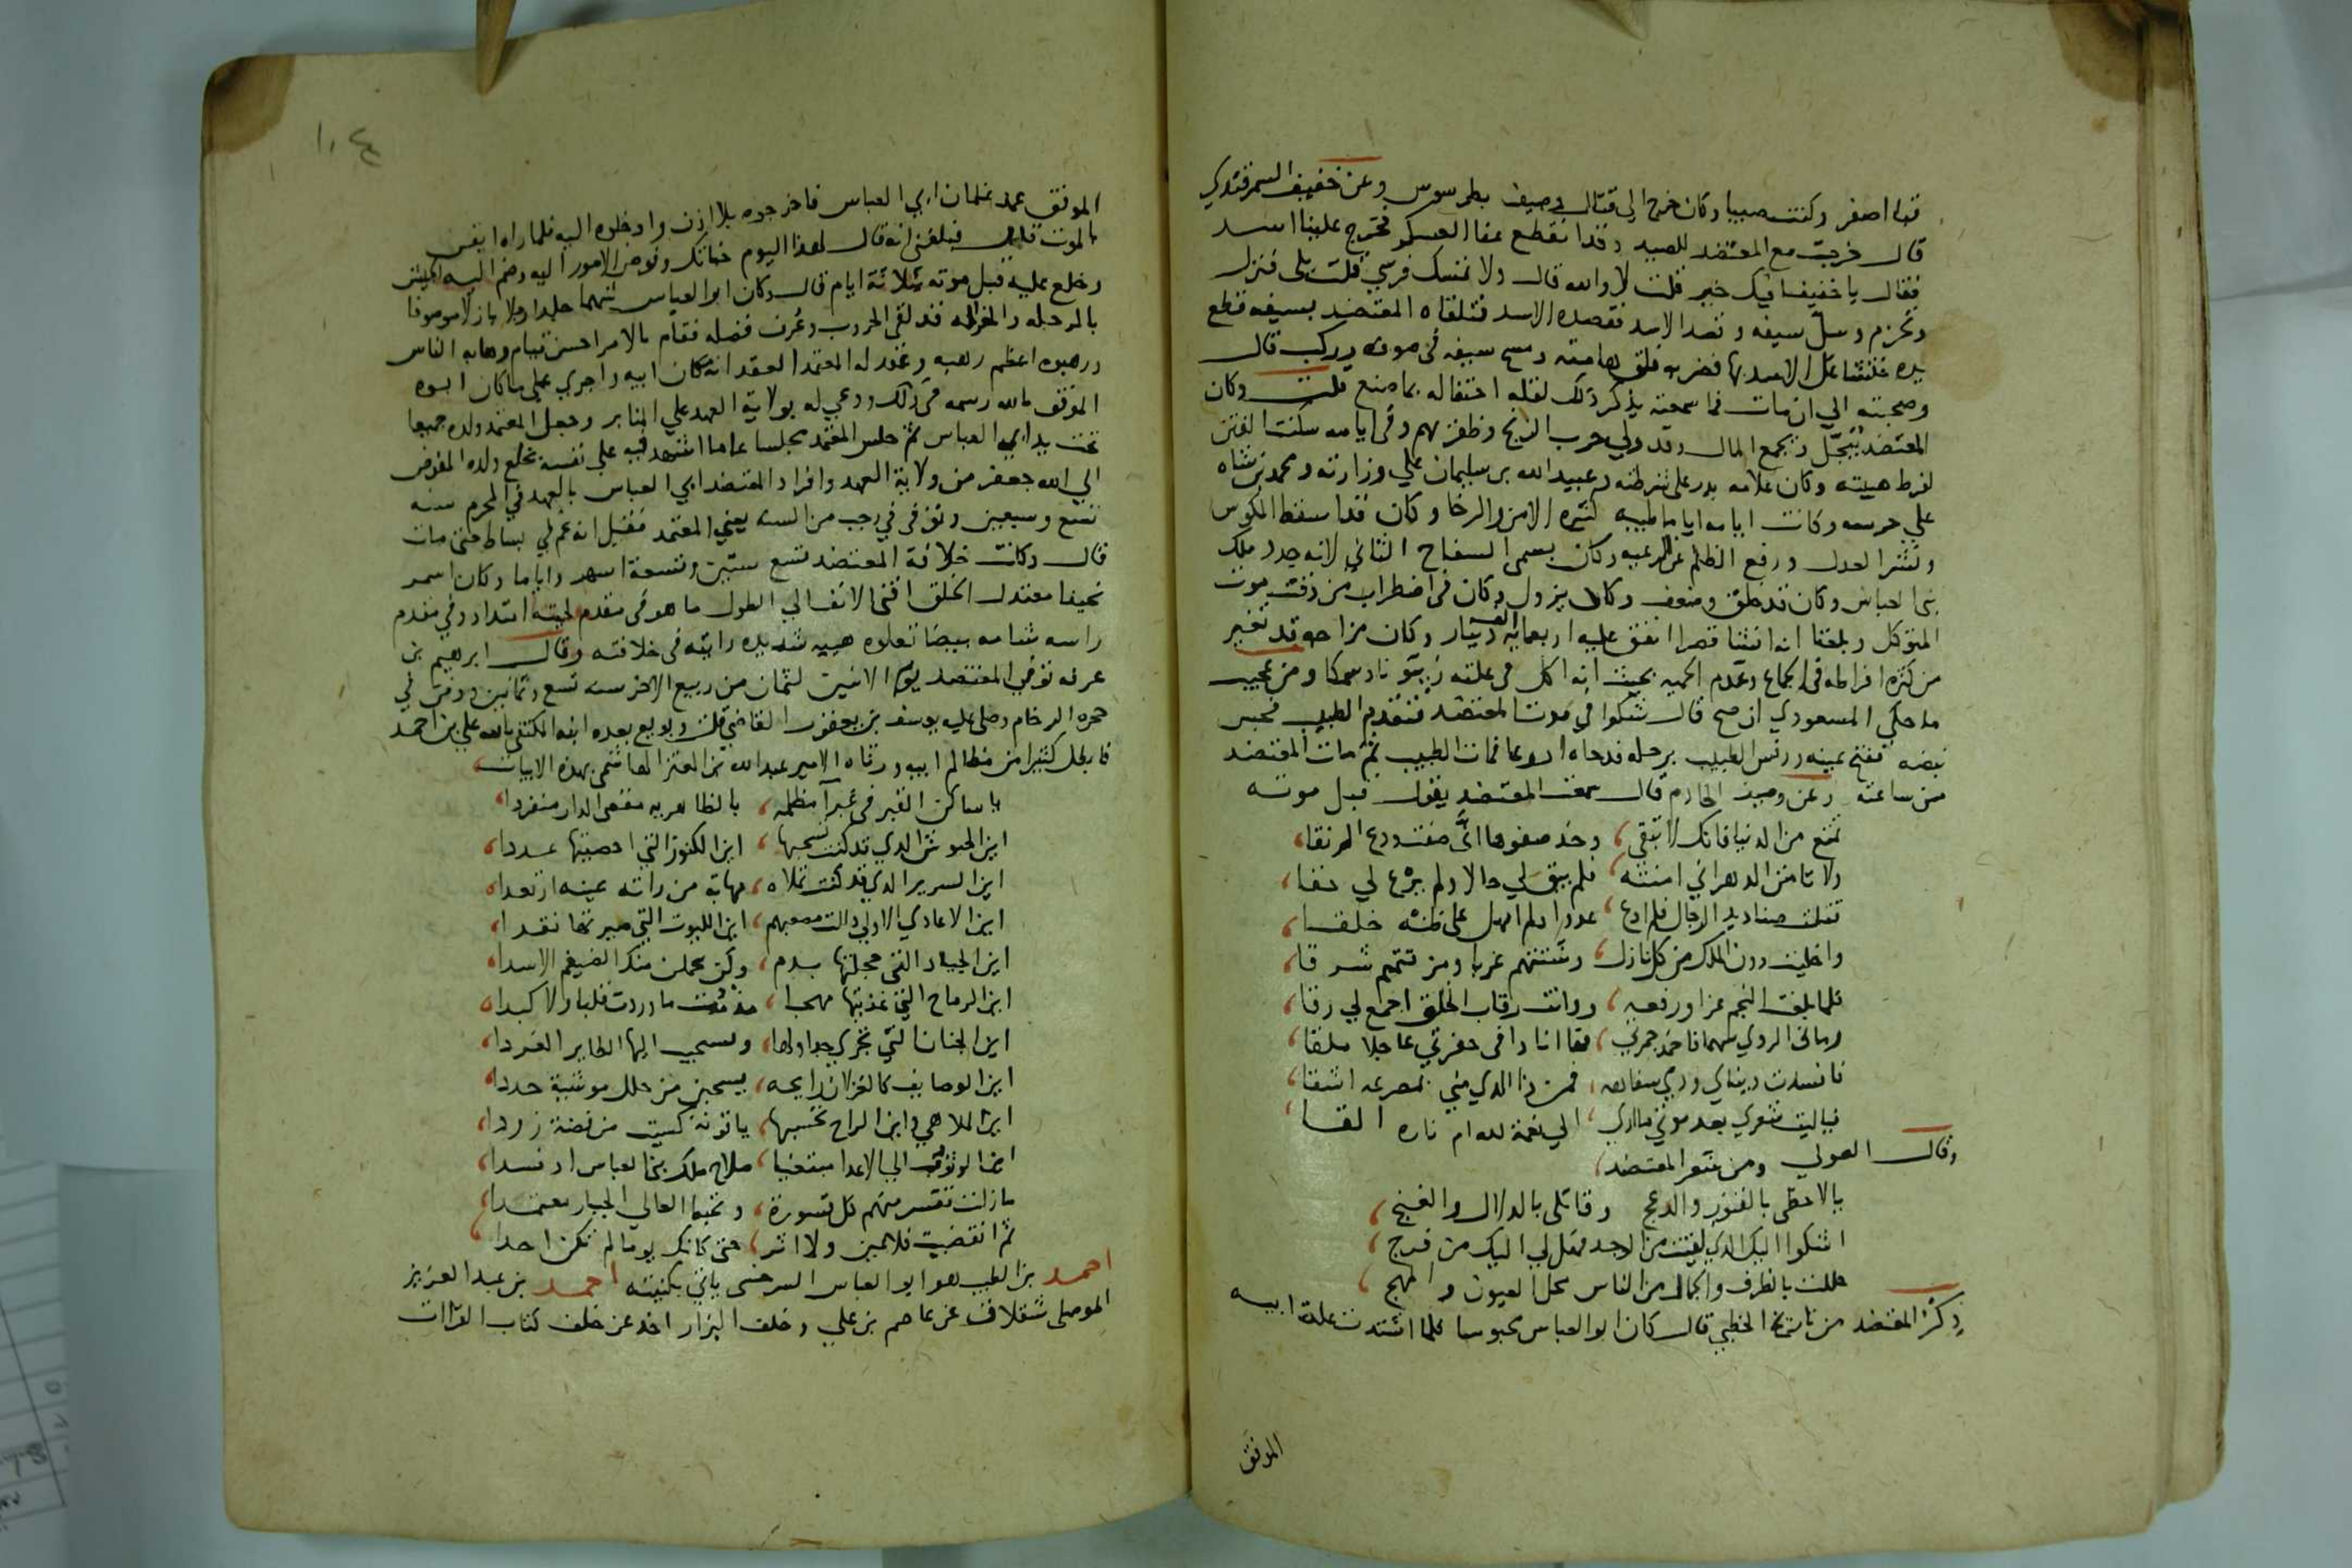 قبا اصفر وكنت صبيا وكان خرج الى قتال وصيف بطرسوس وعن خفيف السمرقندي
قال خرجت مع المعتضد للصيد وقد انقطع عنا العسكر فخرج علينا اسد
فقال يا خفيف افيك خير قلت لا والله قال ولا تمسك فرسي قلت بلى فنزل
وتحزم وسل سيفه وقصد الاسد فقصده الاسد فتلقاه المعتضد بسيفه قطع
يده فتشاغل الاسد بها فضربه فلق هامته ومسح سيفه في صوفه وركب قال
وصحبته الي ان مات فما سمعته يذكر ذلك لقلة احتفاله بما صنع قلت وكان
المعتضد يبخل ويجمع المال وقد ولي حرب الزنج وظفر بهم وفي ايامه سكنت الفتن
لفرط هيبته وكان غلامه بدر على شرطته وعبيد الله بن سليمان علي وزارته ومحمد بن شاه
علي حرسه وكانت ايامه اياما طيبه كثيره الامن والرخا وكان قد اسقط المكوس
ونشر العدل ورفع الظلم عن الرعيه وكان يسمى السفاح الثاني لانه جدد ملك
بني العباس وكان قد خلق وضعف وكاد يزول وكان في اضطراب من وقت موت
المتوكل وبلغنا انه انشا قصرا انفق عليه اربعماية الف دينار وكان مزاجه قد تغير
من كثرة افراطه في الجماع وعدم الحميه بحيث انه اكل في علته زيتونا وسمكا ومن عجيب
ما حكي المسعودي ان صح قال شكوا في موت المعتضد فتقدم الطبيب فجس
نبضه ففتح عينه ورفس الطبيب برجله فدحاه اذرعا فمات الطبيب ثم مات المعتضد
من ساعته وعن وصيف الخادم قال سمعت المعتضد يقول قبل موته
تمتع من الدنيا فانك لا تبقى، وخذ صفوها ان صفت ودع الرنقا،
ولا تامنن الدهر اني امنته، فلم يبق لي حالا ولم يرع لي حقا،
قتلت صناديد الرجال فلم ادع، عدوا ولم امهل على ظنه خلقا،
واخليت دون الملك من كل نازل، وشتتهم غربا ومزقتهم شرقا،
فلما بلغت النجم عزا ورفعه، ودانت رقاب الخلق اجمع لي رقا،
رماني الردي سهما فاخمد جمرتي، فها انا ذا في حفرتي عاجلا ملقا،
فافسدت دنياي وديني سفاهه، فمن ذا الذي مني بمصرعه اشقا،
فياليت شعري بعد موتي ما اري، الي نعمة لله ام ناره القا،
وقال الصولي ومن شعر المعتضد،
يا لاحظي بالفتور والدعج وقاتلي بالدلال والغنج،
اشكوا اليك الذي لقيت من الوجد فهل لي اليك من فرج،
حللت بالظرف والجمال من الناس محل العيون والمهج،
ذكر المعتضد من تاريخ الخطبي قال كان ابو العباس محبوسا فلما اشتدت علة ابيه
الموفق
١٠٤
الموفق عمد غلمان ابي العباس فاخرجوه بلا اذن وادخلوه اليه فلما راه ايقن
بالموت فبلغني انه قال لهذا اليوم خباتك وفوض الامور اليه وضم اليه الجيش
وخلع عليه قبل موته بثلاثة ايام قال وكان ابو العباس شهما جلدا رجلا بازلا موصوفا
بالرجله والجزاله قد لقي الحروب وعرف فضله فقام بالامر احسن قيام وهابه الناس
ورهبوه اعظم رهبه وعقد له المعتمد العقد انه مكان ابيه واجري علي ما كان ابوه
الموفق بالله رسمه في ذلك ودعي له بولاية العهد علي المنابر وجعل المعتمد ولده جميعا
تحت يد ابي العباس ثم جلس المعتمد مجلسا عاما اشهد فيه علي نفسه بخلع ولده المفوض
الي الله جعفر من ولاية العهد وافراد المعتضد ابي العباس بالعهد في المحرم سنه
تسع وسبعين وتوفي في رجب من السنه يعني المعتمد فقيل انه غم في بساط حتى مات
قال وكانت خلافة المعتضد تسع سنين وتسعة اشهر واياما وكان اسمر
نحيفا معتدل الخلق اقنى الانف الي الطول ما هو في مقدم لحيته امتداد وفي مقدم
راسه شامه بيضا تعلوه هيبه شديده رايته في خلافته وقال ابرهيم بن
عرفه توفي المعتضد يوم الاثنين لثمان من ربيع الاخر سنه تسع وثمانين ودفن في
حجره الرخام وصلى عليه يوسف بن يعقوب القاضي قلت وبويع بعده ابنه المكتفي بالله علي بن احمد
فابطل كثيرا من مظالم ابيه ورثاه الامير عبد الله بن المعتز الهاشمي بهذه الابيات،
يا ساكن القبر في غبرآ مظلمه، بالظاهريه مقصى الدار منفردا،
اين الجيوش الذي قد كنت تسحبها، اين الكنوز التي احصيتها عددا،
اين السرير الذي قد كنت تملاه، مهابة من راته عينه ارتعدا،
اين الاعادي الاولى ذللت مصعبهم، اين الليوث التي صيرتها نقدا،
اين الجياد التي حجلتها بدم، وكن يحملن منك الضيغم الاسدا،
اين الرماح التي غذيتها مهجا، مذ مت ما وردت قلبا ولا كبدا،
اين الجنان التي تجري جداولها، وتستجيب اليها الطاير الغردا،
اين الوصايف كالغزلان رايحه، يسحبن من حلل موشية جددا،
اين الملاهي واين الراح تحسبها، ياقوتة كسيت من فضة زردا،
اين الوثوب الي الاعدا مبتغيا، صلاح ملك بني العباس اذ فسدا،
ما زلت تقسر منهم كل قسورة، وتخبط العالي الجبار معتمدا،
ثم انقضيت فلا عين ولا اثر، حتى كانك يوما لم تكن احدا،
احمد بن الطيب هو ابو العباس السرخسي ياتي بكنيته احمد بن عبد العزيز
الموصلي شقلاق عن عاصم بن علي وخلف البزار اخذ عن خلف كتاب القراات